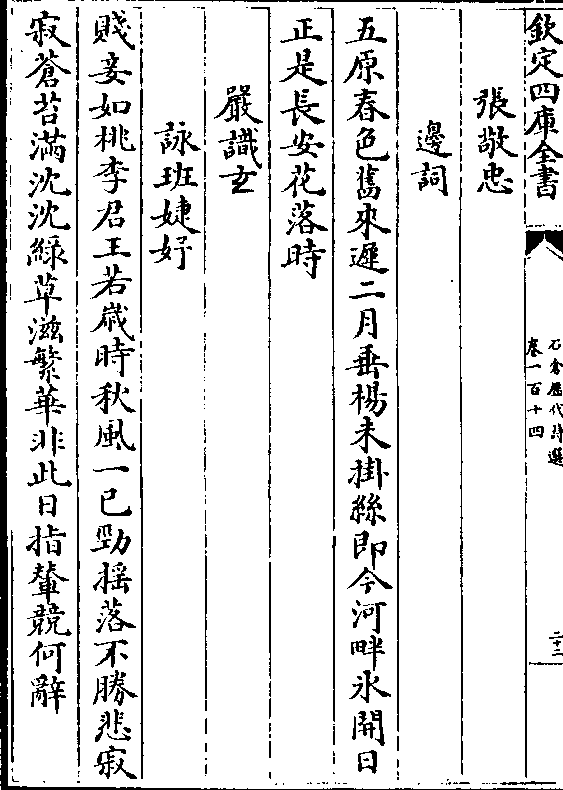 欽定四庫全書
石倉歷代詩選
卷一百十四
二十二
張敬忠
邊詞
五原春色舊來遲二月垂楊未掛絲即今河畔氷開日
正是長安花落時
嚴識玄
詠班婕妤
賤妾如桃李君王若嵗時秋風一已勁揺落不勝悲寂
寂蒼苔滿沈沈綠草滋繁華非此日指輦競何辭